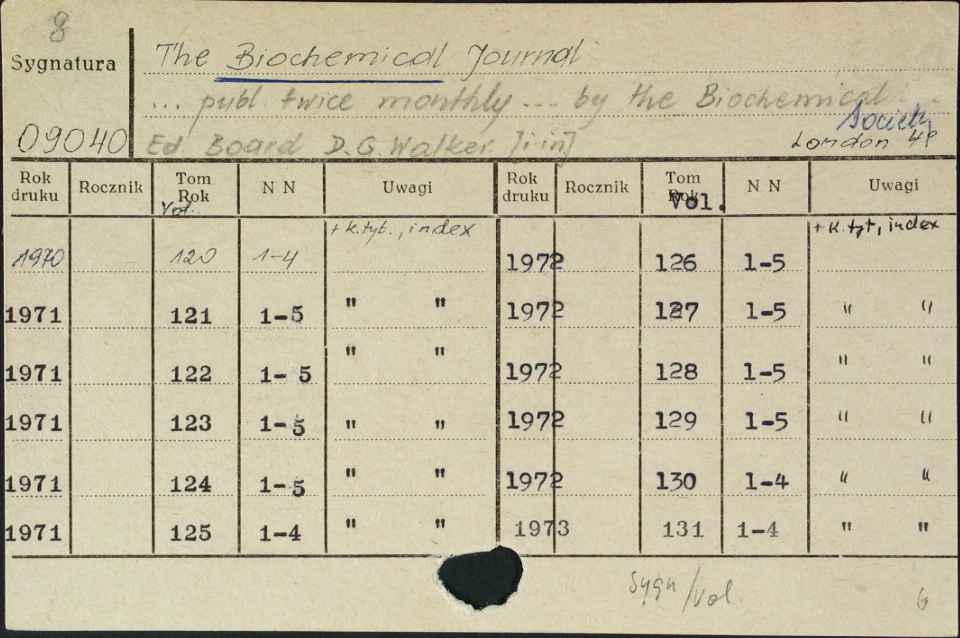 8
Sygnatura The Biochemical Journal
... publ. twice monthly ... by the Biochemical
Society
09040 Ed. Board D.G. Walker [i in] London 4°
Rok druku Rocznik Tom Rok Vol. N N Uwagi Rok druku Rocznik Tom Rok Vol. N N Uwagi
1970 120 1-4 + k.tyt., index 1972 126 1-5 + k.tyt, index
1971 121 1-5 " " 1972 127 1-5 " "
1971 122 1-5 " " 1972 128 1-5 " "
1971 123 1-5 " " 1972 129 1-5 " "
1971 124 1-5 " " 1972 130 1-4 " "
1971 125 1-4 " " 1973 131 1-4 " "
Sygn/Vol.
6